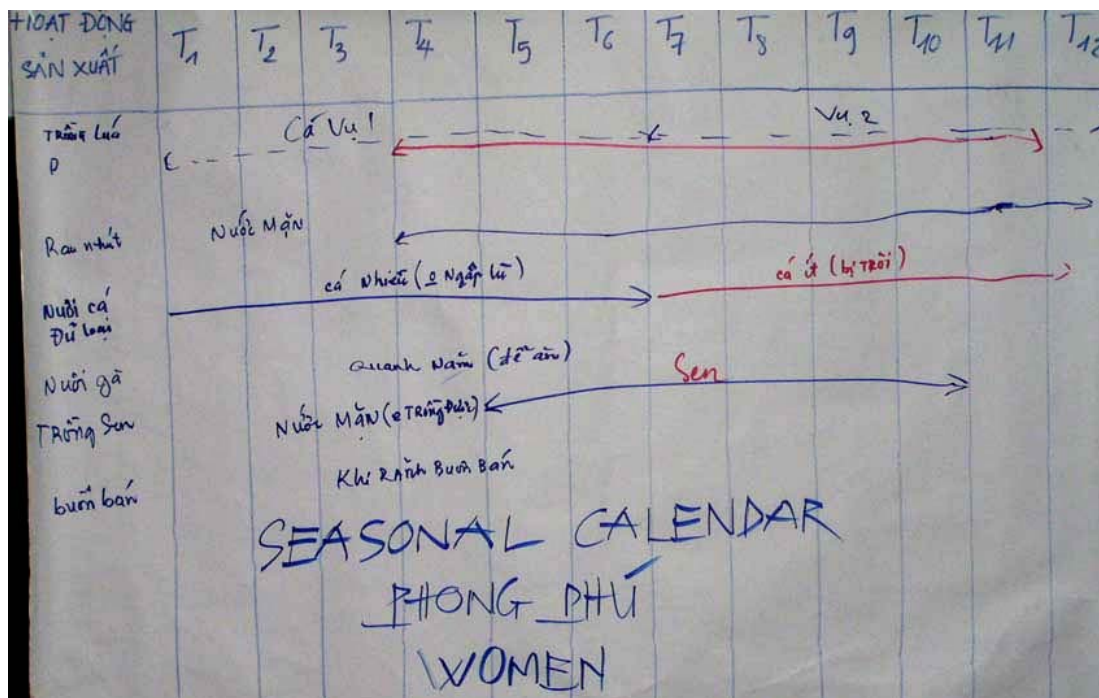 HOẠT ĐỘNG SẢN XUẤT
T1 T2 T3 T4 T5 T6 T7 T8 T9 T10 T11 T12
Trồng Lúa Cá Vụ 1 Vụ 2
Rau nhút Nước Mặn
Nuôi cá Đủ loại cá Nhiều (o Ngập lũ) cá ít (bị TRôi)
Nuôi gà Quanh Năm (để ăn)
TRồng Sen Nước MặN (o TRồng Được) Sen
buôn bán Khi RảNh Buôn BáN
SEASONAL CALENDAR
PHONG PHÚ
WOMEN